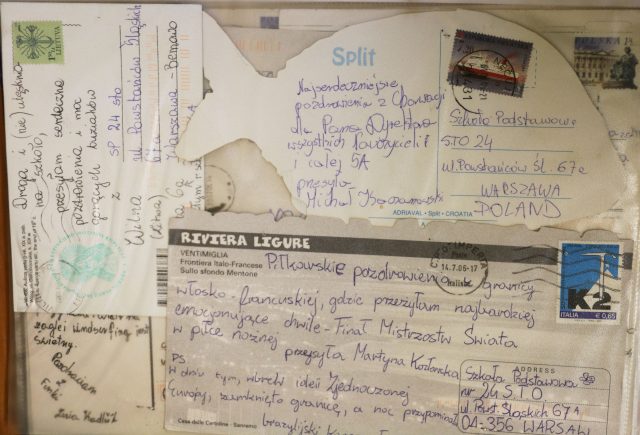 LIETUVA
Droga i (nie) tęskniąca
na szkoło,
przesyłam serdeczne
pozdrowienia i moc
gorących buziaków
z
Wilna
SP 24 STO
ul. Powstańców Śląskich
Warszawa - Bemowo
Split
Najserdeczniejsze
pozdrowienia z Chorwacji
dla Pana Dyrektora
wszystkich nauczycieli
i całej 5A
przesyła
Michał
Szkoła Podstawowa
STO 24
ul. Powstańców Śl. 67a
WARSZAWA
POLAND
ADRIAVAL • Split • CROATIA
POLSKA
RIVIERA LIGURE
VENTIMIGLIA
Frontiera Italo-Francese
Sullo sfondo Mentone
Piłkarskie pozdrowienia z granicy
włosko-francuskiej, gdzie przeżyłam najbardziej
emocjonujące chwile - Finał Mistrzostw Świata
w piłce nożnej
przesyła Martyna Kozłowska
PS.
W dniu tym, wbrew idei Zjednoczonej
Europy, zamknięto granicę, a noc przypominała
14.7.06-17
K2
ITALIA € 0,65
ADDRESS
Szkoła Podstawowa
nr 24 STO
ul. Powst. Śląskich 67A
04-356 WARSAW
Casa della Cartolina - Sanremo
żagle i windsurfing jest
świetny.
Pozdrawiam
z